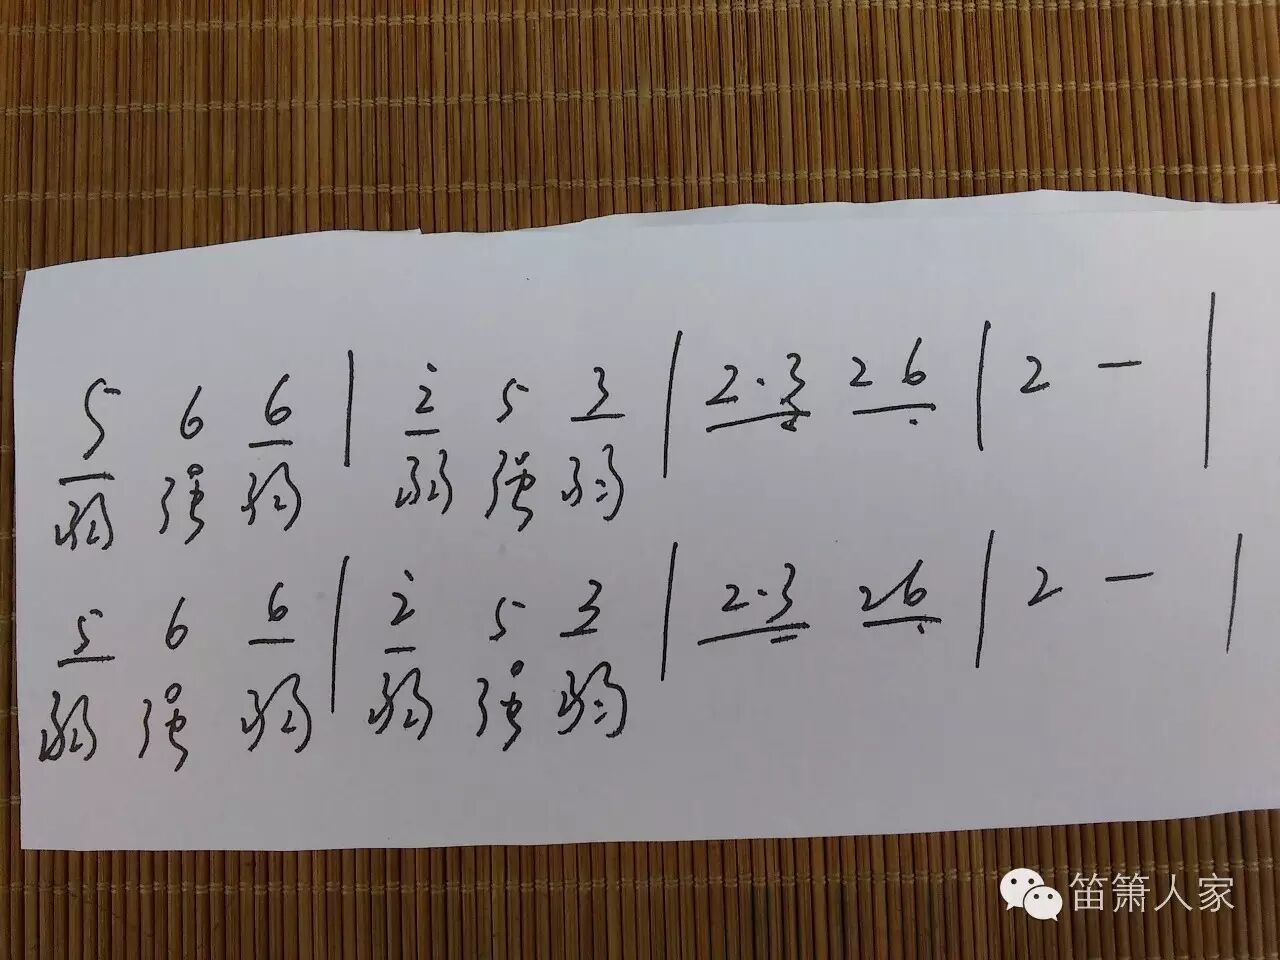 5 6 6 | i̇ 5 3 | 2·3 26̣ | 2 — |
弱 强 弱 弱 强 弱
5 6 6 | 2̇ 5 3 | 2·3 26̣ | 2 — |
弱 强 弱 弱 强 弱
笛箫人家